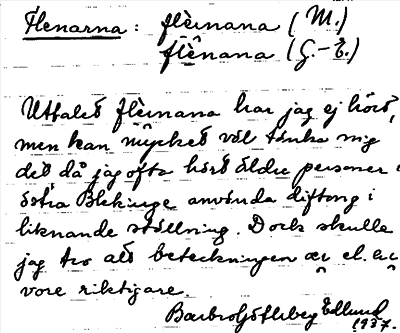 Flenarna: flèinana (M.)
flēnana (G.-E.)
Uttalet flèinana har jag ej hört,
men kan mycket väl tänka mig
det då jag ofta hört äldre personer i
östra Blekinge använda diftong i
liknande ställning. Dock skulle
jag tro att beteckningen æi el. ai
vore riktigare.
Edlund
1937.